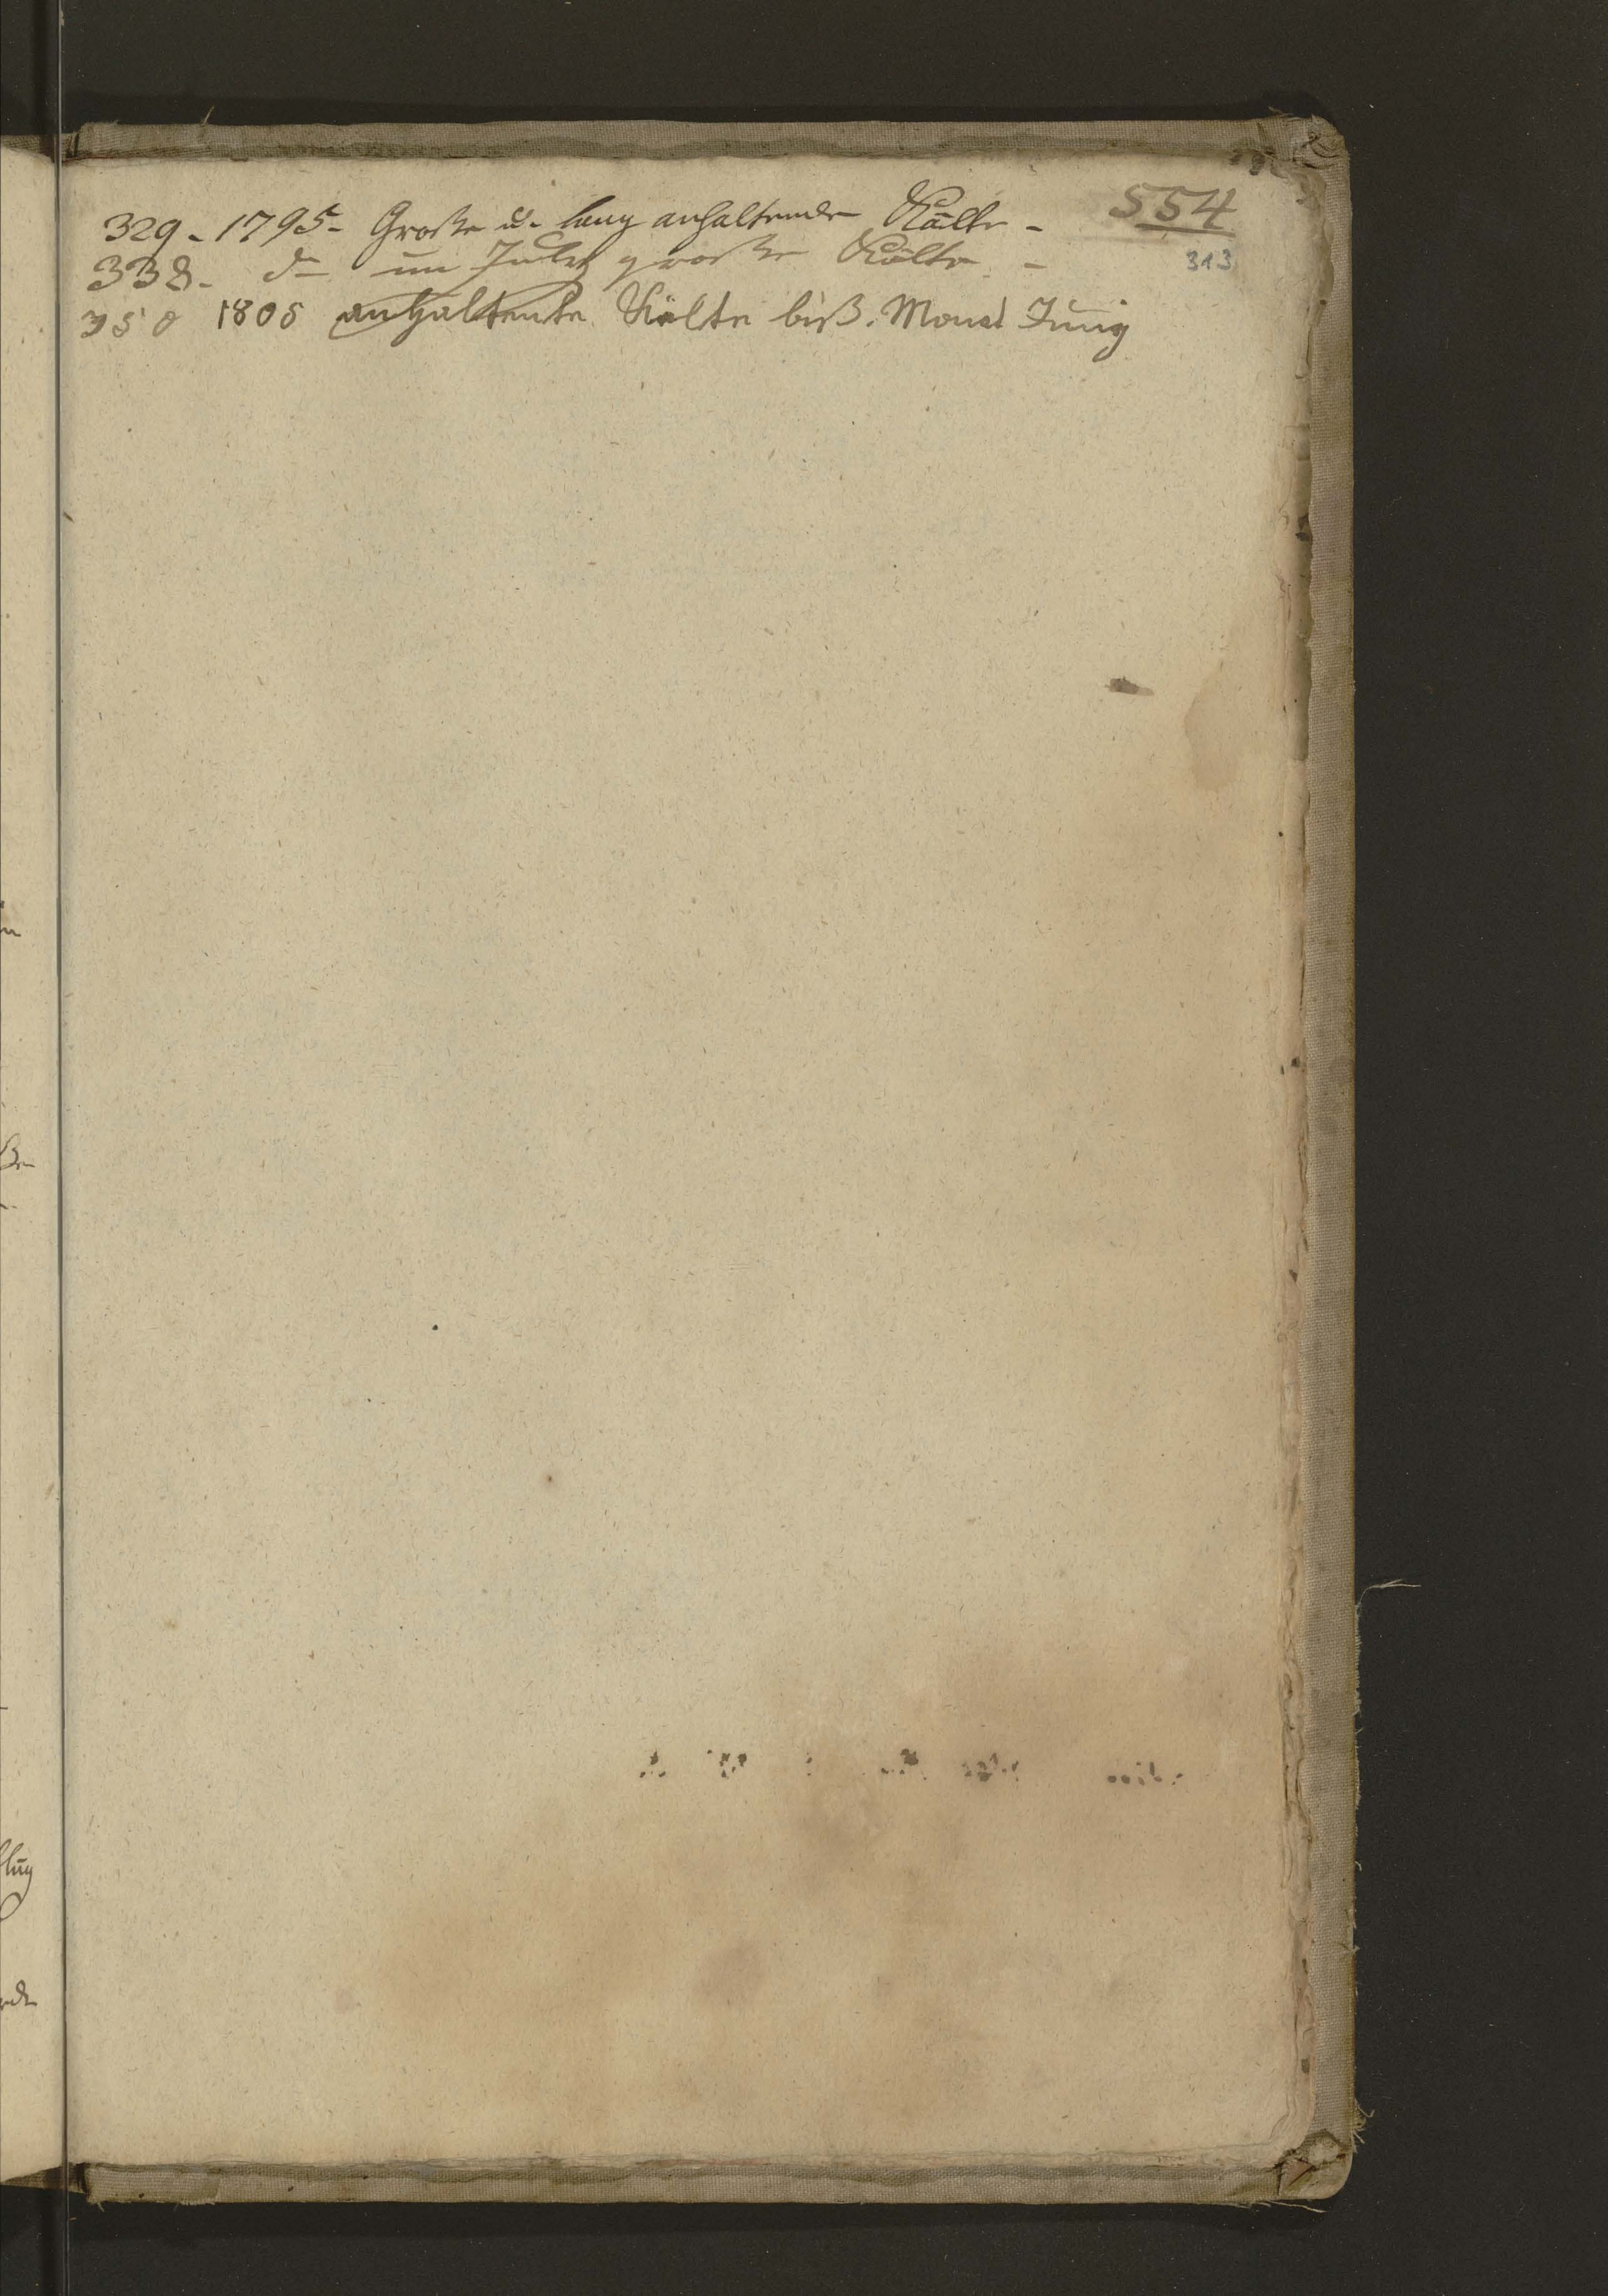 554
313
329 - 1795 - Große u. lang anhaltende Kälte -
338 - do im July große Kälte -
350 1805 anhaltente Kälte biß. Monat Juny